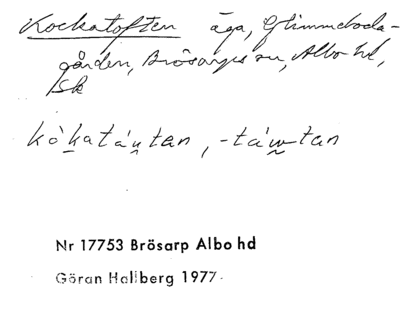 Kockatoften äga, Glimmeboda-
gården, Brösarps sn, Albo hd,
Sk
kòkatáu̯tan, -táw̰tan
Nr 17753 Brösarp Albo hd
Göran Hallberg 1977.